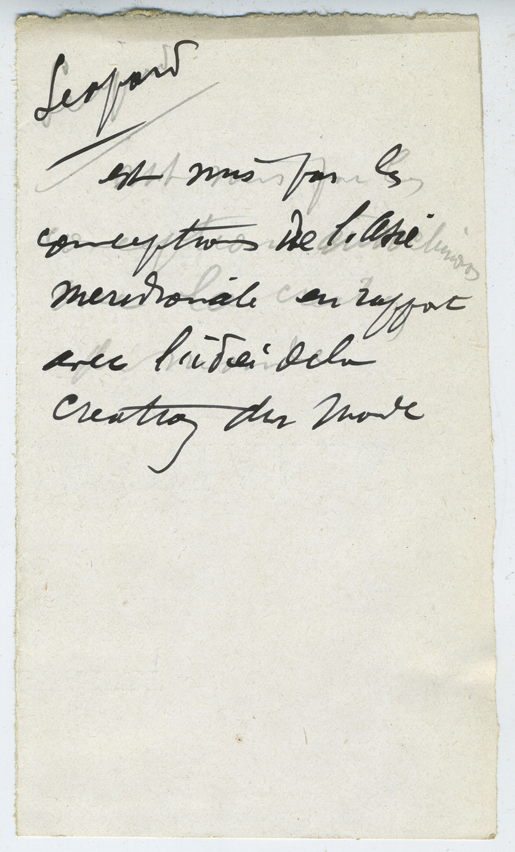 Leopard
est mis par les
conceptions de l'Asie
meridionale en rapport
avec l'idée de la
creation du monde